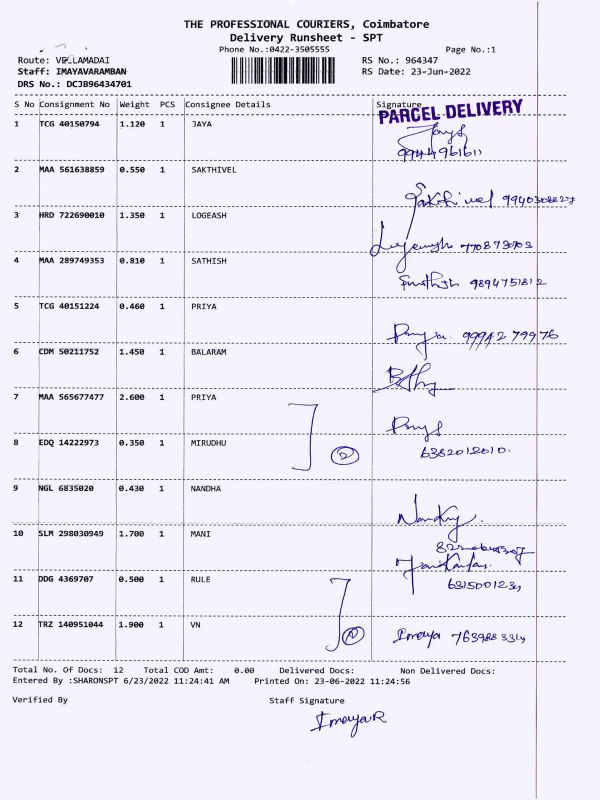 THE PROFESSIONAL COURIERS, Coimbatore
Delivery Runsheet - SPT
Phone No.:0422-3505555 Page No.:1
Route: VELLAMADAI RS No.: 964347
Staff: IMAYAVARAMBAN RS Date: 23-Jun-2022
DRS No.: DCJB96434701
S No Consignment No Weight PCS Consignee Details Signature
PARCEL DELIVERY
1 TCG 40150794 1.120 1 JAYA
2 MAA 561638859 0.550 1 SAKTHIVEL
Sakthivel
3 HRD 722690010 1.350 1 LOGEASH
4 MAA 289749353 0.810 1 SATHISH
9894751812
5 TCG 40151224 0.460 1 PRIYA
99942 79976
6 CDM 50211752 1.450 1 BALARAM
7 MAA 565677477 2.600 1 PRIYA
8 EDQ 14222973 0.350 1 MIRUDHU
2 6382012010.
9 NGL 6835020 0.430 1 NANDHA
10 SLM 298030949 1.700 1 MANI
11 DDG 4369707 0.500 1 RULE
12 TRZ 140951044 1.900 1 VN
Imaya
Total No. Of Docs: 12 Total COD Amt: 0.00 Delivered Docs: Non Delivered Docs:
Entered By :SHARONSPT 6/23/2022 11:24:41 AM Printed On: 23-06-2022 11:24:56
Verified By Staff Signature
ImayaR